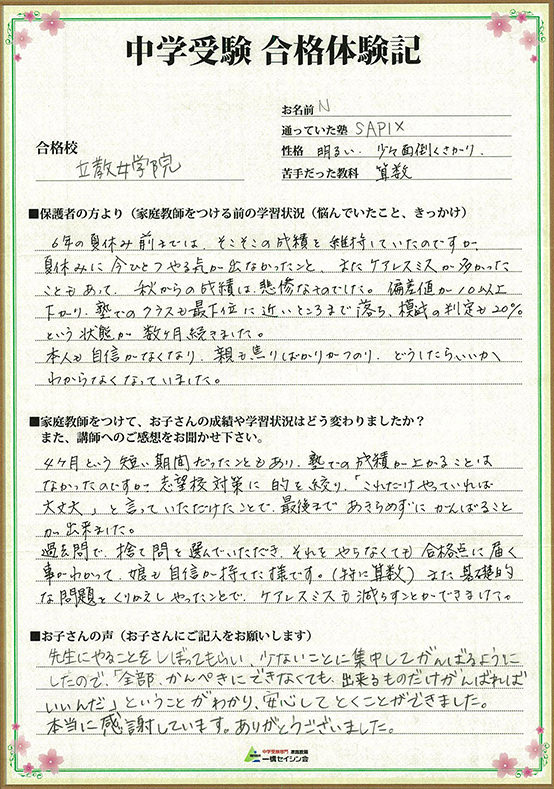 中学受験 合格体験記
お名前 N
通っていた塾 SAPIX
合格校 立教女学院
性格 明るい. 少々面倒くさがり.
苦手だった教科 算数
■保護者の方より（家庭教師をつける前の学習状況（悩んでいたこと、きっかけ）
6年の夏休み前までは、そこそこの成績を維持していたのですが、
夏休みに今ひとつやる気が出なかったことと、またケアレスミスが多かった
こともあって、秋からの成績は悲惨なものでした。偏差値が10以上
下がり、塾でのクラスも最下位に近いところまで落ち、模試の判定も20%
という状態が数ヶ月続きました。
本人も自信がなくなり、親も焦りばかりがつのり、どうしたらいいか
わからなくなっていました。
■家庭教師をつけて、お子さんの成績や学習状況はどう変わりましたか？
また、講師へのご感想をお聞かせ下さい。
4ヶ月という短い期間だったこともあり、塾での成績が上がることは
なかったのですが、志望校対策に的を絞り、「これだけやっていれば
大丈夫」と言っていただけたことで、最後まであきらめずにがんばること
が出来ました。
過去問で、捨て問を選んでいただき、それをやらなくても合格点に届く
事がわかって、娘も自信が持てた様です。（特に算数）また、基礎的
な問題をくりかえしやったことで、ケアレスミスも減らすことができました。
■お子さんの声（お子さんにご記入をお願いします）
先生にやることをしぼってもらい、少ないことに集中してがんばるように
したので、「全部、かんぺきにできなくても、出来るものだけがんばれば
いいんだ」ということがわかり、安心してとくことができました。
本当に感謝しています。ありがとうございました。
中学受験専門 家庭教師
一橋セイシン会